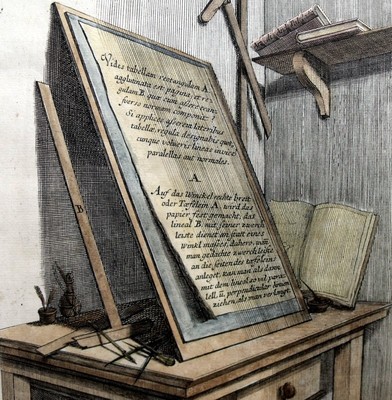 Vides tabellam rectangulam A.
agglutinata est pagina, et re,
gulam B. quæ cum assere trans,
verso normam componit.
Si applices asserem lateribus
tabellæ, regula designabis quot,
cunque volueris lineas invicem
parallelas aut normales.
A
Auf das Winckel rechte breit
oder Täfelein A. wird das
papier fest gemacht, das
lineal B. mit seiner zwerch
leiste dienet an statt eines
winckel maßes, dahero, wan
man gedachte zwerch leiste
an die seiten des täfeleins
anleget, kan man als dann
mit dem lineal so viel paral,
lell, u. perpendicular linien
ziehen, als man verlanget.
B